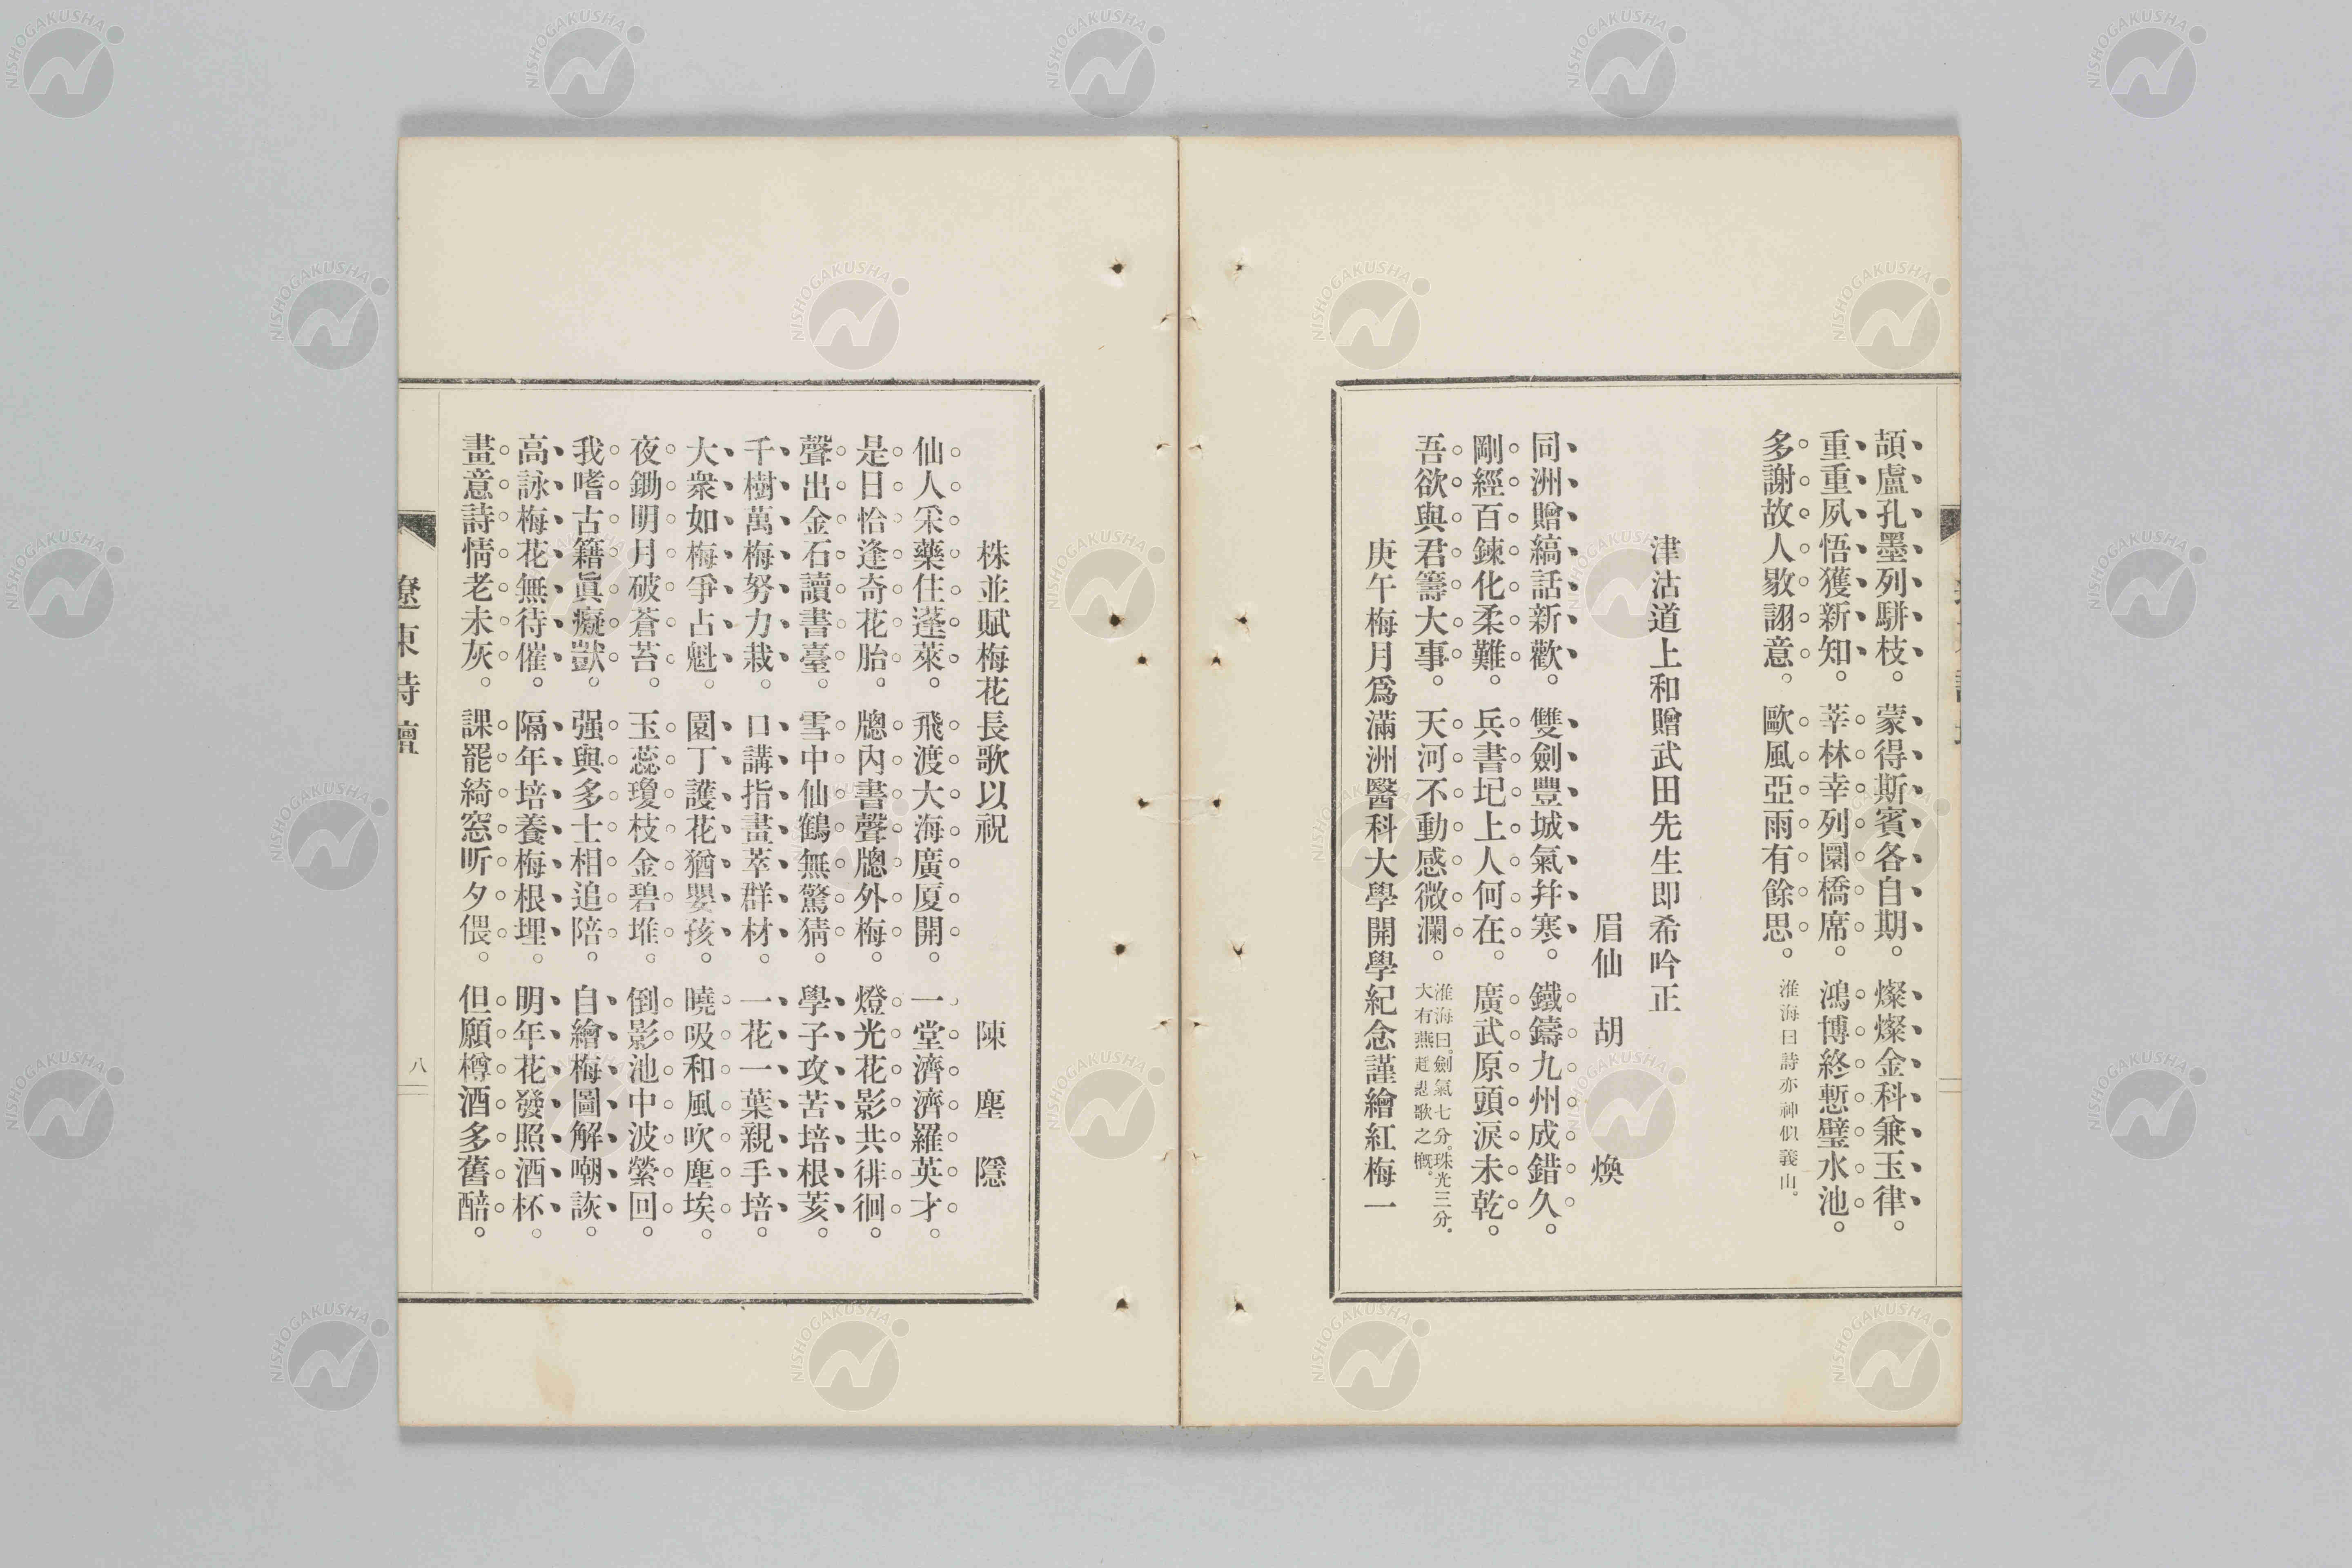 頡盧孔墨列駢枝。蒙得斯賓各自期。燦燦金科兼玉律。
重重夙悟獲新知。莘林幸列圜橋席。鴻博終慙璧水池。
多謝故人歇詡意。歐風亞雨有餘思。淮海曰詩亦神似義山。
津沽道上和贈武田先生即希吟正
眉仙 胡 煥
同洲贈縞話新歡。雙劍豐城氣幷寒。鐵鑄九州成錯久。
剛經百鍊化柔難。兵書圯上人何在。廣武原頭淚未乾。
吾欲與君籌大事。天河不動感微瀾。淮海曰。劍氣七分。珠光三分。大有燕趙悲歌之槪。
庚午梅月爲滿洲醫科大學開學紀念謹繪紅梅一
株並賦梅花長歌以祝 陳塵隱
仙人采藥住蓬萊。飛渡大海廣厦開。一堂濟濟羅英才。
是日恰逢奇花胎。牕內書聲牕外梅。燈光花影共徘徊。
聲出金石讀書臺。雪中仙鶴無驚猜。學子攻苦培根荄。
千樹萬梅努力栽。口講指畫萃群材。一花一葉親手培。
大衆如梅爭占魁。園丁護花猶嬰孩。曉吸和風吹塵埃。
夜鋤明月破蒼苔。玉蕊瓊枝金碧堆。倒影池中波縈回。
我嗜古籍眞癡獃。强與多士相追陪。自繪梅圖解嘲詼。
高詠梅花無待催。隔年培養梅根埋。明年花發照酒杯。
畫意詩情老未灰。課罷綺窓昕夕偎。但願樽酒多舊醅。
遼東詩壇
八
NISHOGAKUSHA